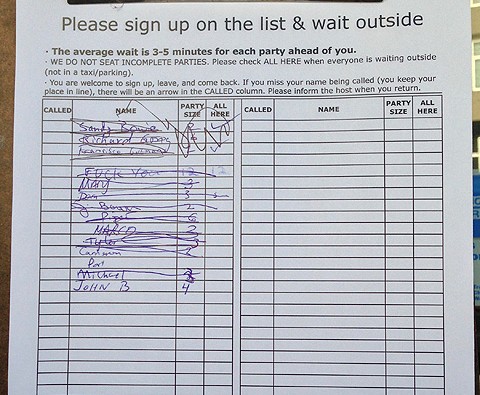 Please sign up on the list & wait outside
· The average wait is 3-5 minutes for each party ahead of you.
· WE DO NOT SEAT INCOMPLETE PARTIES. Please check ALL HERE when everyone is waiting outside
(not in a taxi/parking).
· You are welcome to sign up, leave, and come back. If you miss your name being called (you keep your
place in line), there will be an arrow in the CALLED column. Please inform the host when you return.
CALLED NAME PARTY SIZE ALL HERE CALLED NAME PARTY SIZE ALL HERE
Sandy
Richard
Francisco
Fuck You 12 12
Mary 3
Dan 3
J. Bourn 2
Piper 6
MARCO 2
Tyler
Cameron
Port
Michael 2
JOHN B 4